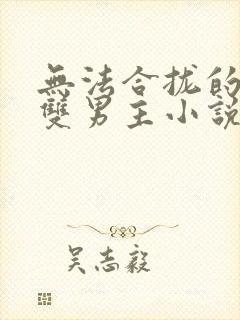 無法合拢的
雙男主小說
吴志毅